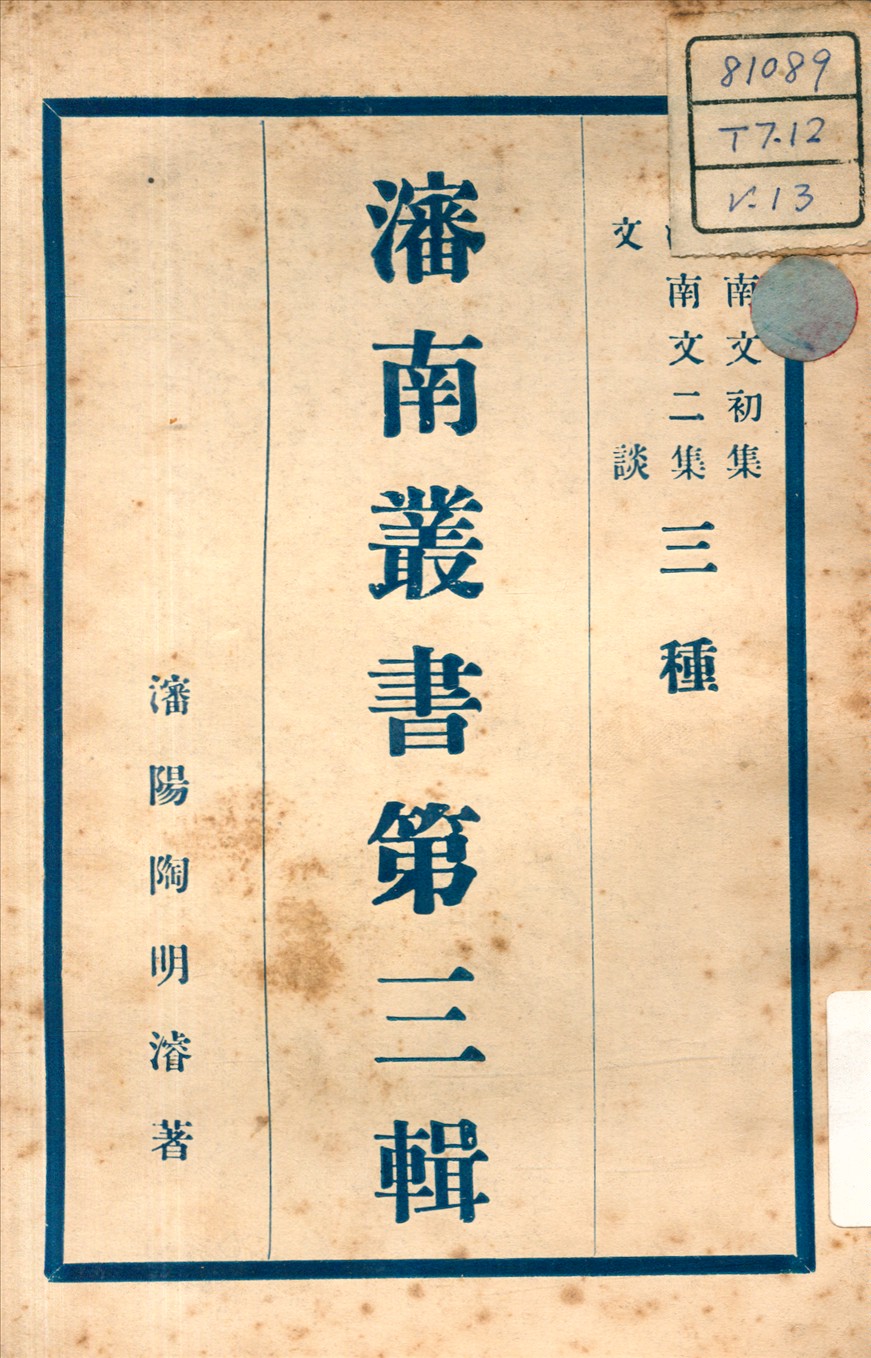 81089
T7.12
V.13
南文初集
南文二集
文談
三種
瀋南叢書第三輯
瀋陽陶明濬著